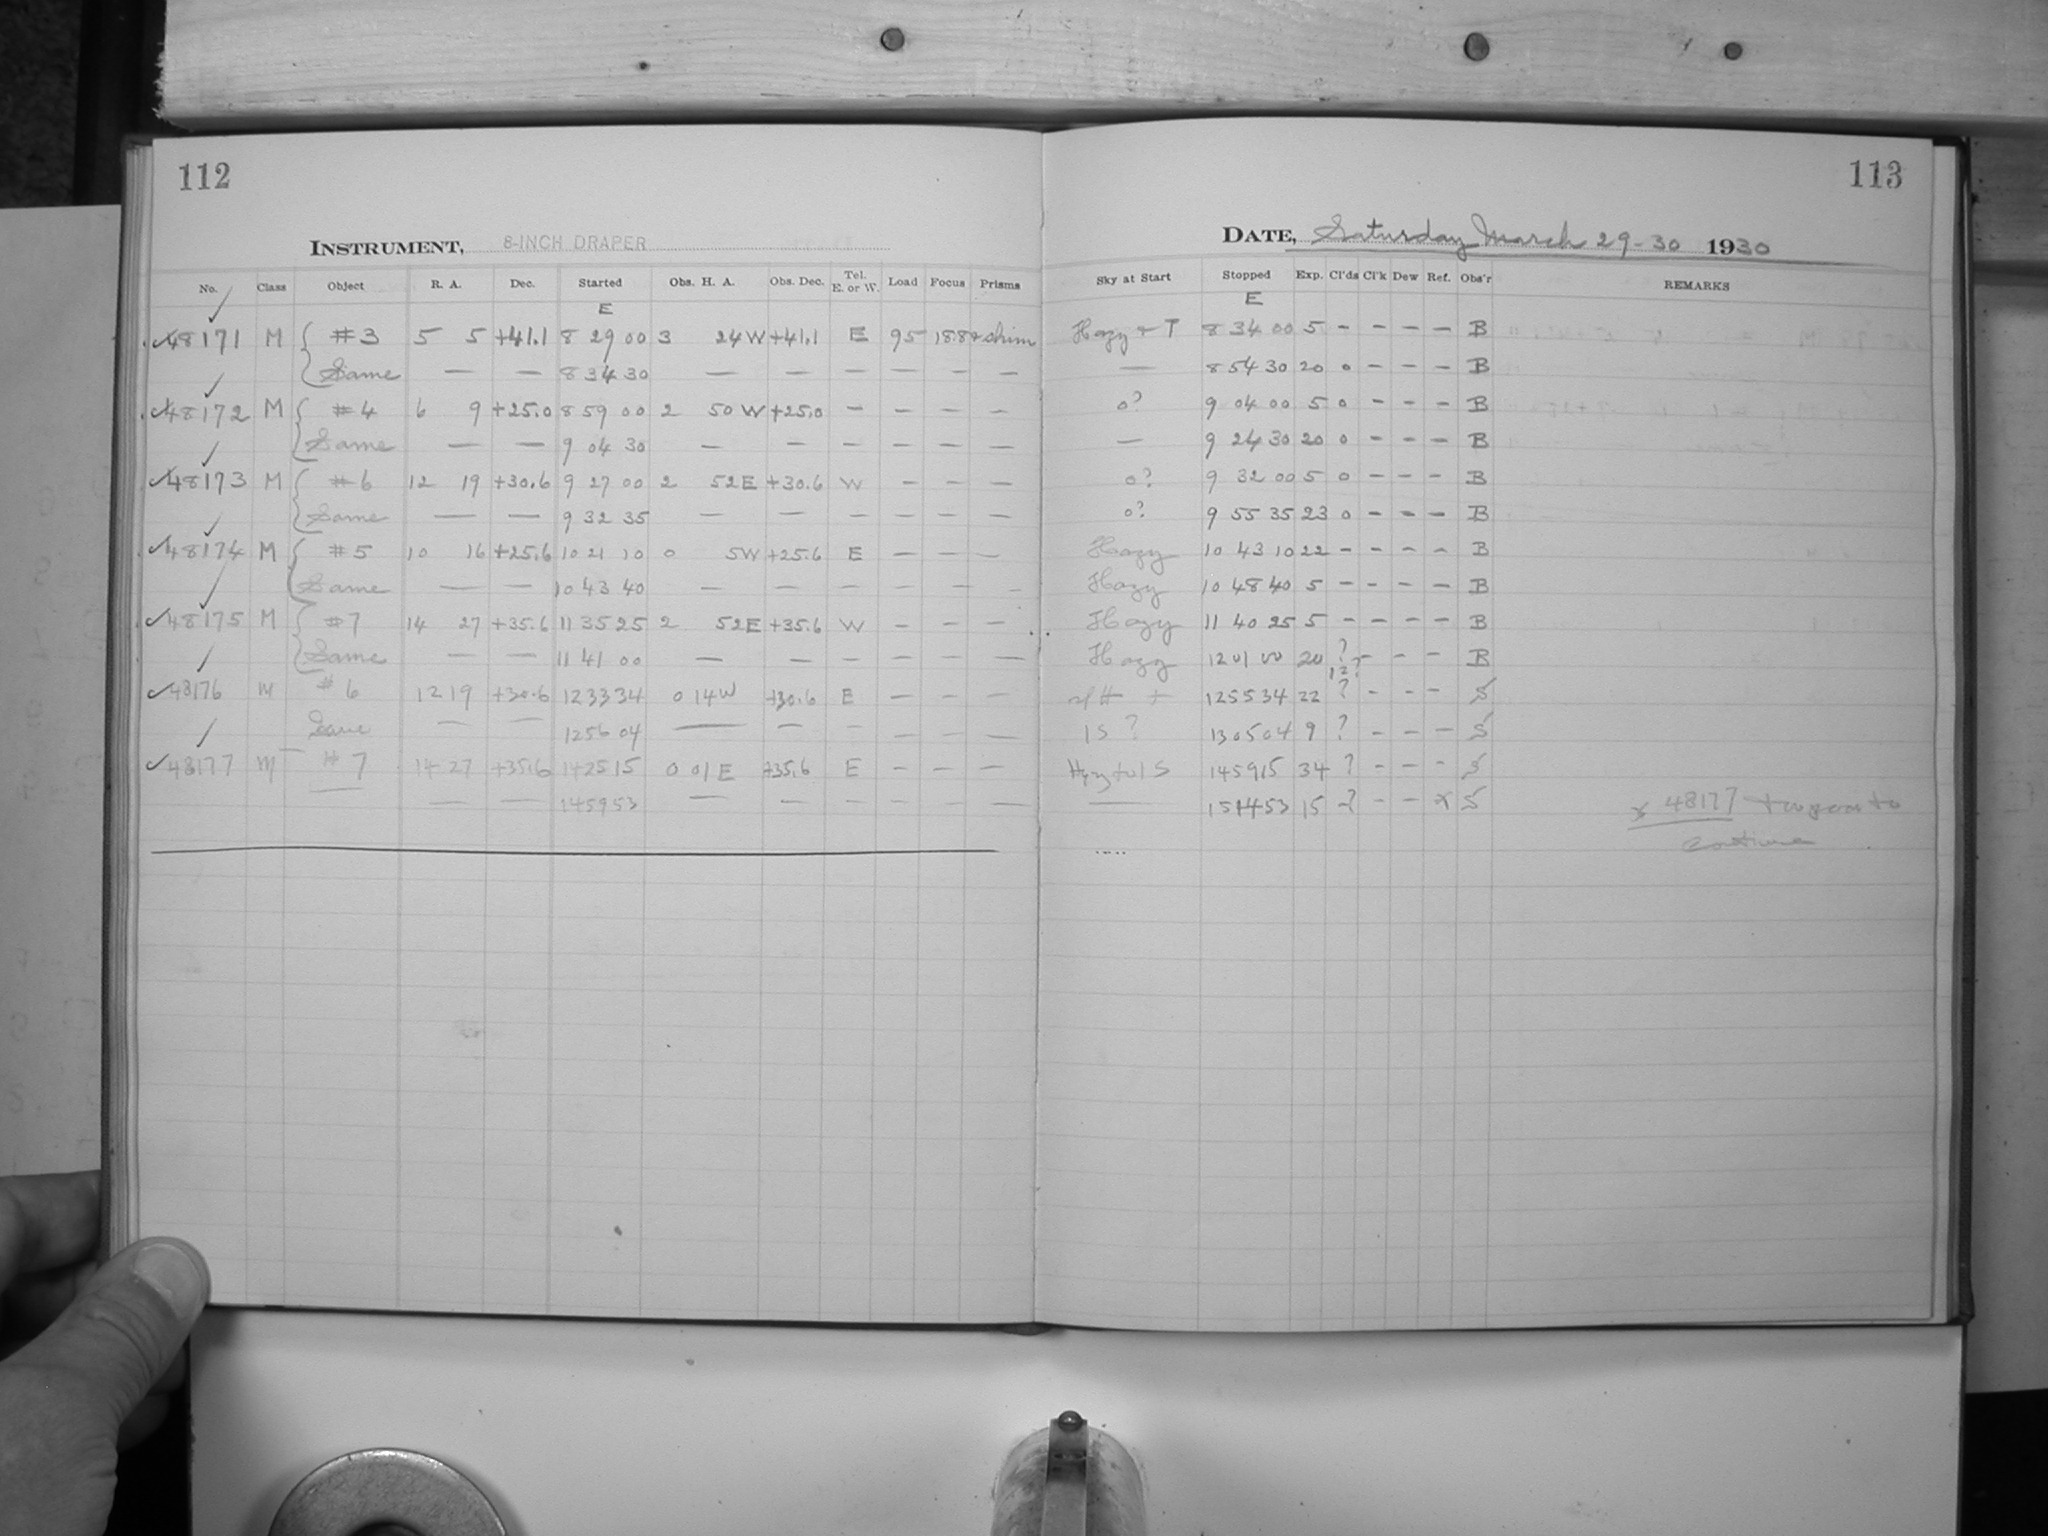 112
INSTRUMENT, 8-INCH DRAPER
No. Class Object R. A. Dec. Started Obs. H. A. Obs. Dec. Tel. E. or W. Load Focus Prisms
E
48171 M #3 5 5 +41.1 8 29 00 3 24 W +41.1 E 95 18.8
Same — — 8 34 30 — — — — — —
48172 M #4 6 9 +25.0 8 59 00 2 50 W +25.0 — — — —
Same — — 9 04 30 — — — — — —
48173 M #6 12 19 +30.6 9 27 00 2 52 E +30.6 W — — —
Same — — 9 32 35 — — — — — —
48174 M #5 10 16 +25.6 10 21 10 0 5 W +25.6 E — — —
Same — — 10 43 40 — — — — — —
48175 M #7 14 27 +35.6 11 35 25 2 52 E +35.6 W — — —
Same — — 11 41 00 — — — — — —
48176 M #6 12 19 +30.6 12 33 34 0 14 W +30.6 E — — —
Same — — 12 56 04 — — — — — —
48177 M #7 14 27 +35.6 14 25 15 0 01 E +35.6 E — — —
— — — 14 59 53 — — — — — —
113
DATE, Saturday March 29-30 1930
Sky at Start Stopped Exp. Cl'ds Cl'k Dew Ref. Obs'r REMARKS
E
Hazy + T 8 34 00 5 — — — — B
— 8 54 30 20 0 — — — B
0? 9 04 00 5 0 — — — B
— 9 24 30 20 0 — — — B
0? 9 32 00 5 0 — — — B
0? 9 55 35 23 0 — — — B
Hazy 10 43 10 22 — — — — B
Hazy 10 48 40 5 — — — — B
Hazy 11 40 25 5 — — — — B
Hazy 12 01 00 20 ? — — — B
12 55 34 22 ? — — — S
1S ? 13 05 04 9 ? — — — S
14 59 15 34 ? — — — S
— 15 14 53 15 ? — — x S x 48177
continue